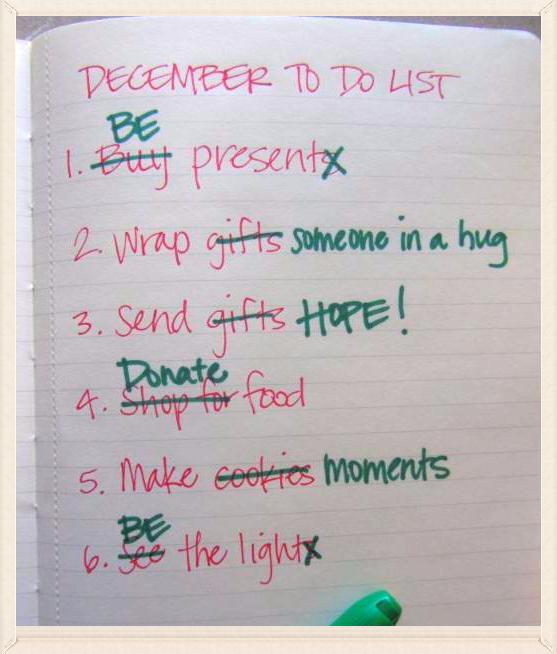 DECEMBER TO DO LIST
BE
1. Buy presents
2. Wrap gifts someone in a hug
3. Send gifts HOPE!
Donate
4. Shop for food
5. Make cookies moments
BE
6. See the lights